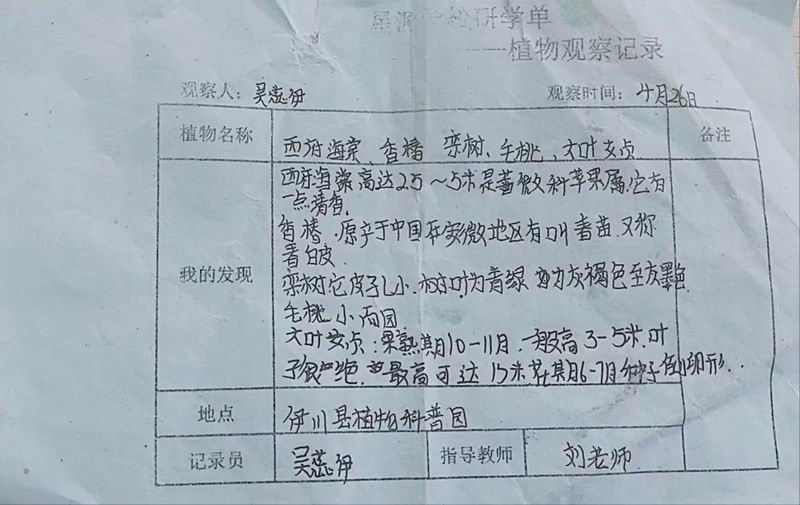 研学单
——植物观察记录
观察人：吴蕊伊
观察时间：4月26日
植物名称
西府海棠、香椿 栾树、毛桃、大叶女贞
备注
我的发现
西府海棠高达2.5～5米是蔷薇科苹果属.它有
一点清香.
香椿.原产于中国 地区有 香苗.又称
香白皮
栾树它皮孔小.树叶为青绿 为灰褐色至灰黑色
毛桃.小而圆
大叶女贞：果熟期10-11月.一般高3-5米.叶
子很 绝.最高可达15米花期6-7月种子倒卵形..
地点
伊川县植物科普园
记录员
吴蕊伊
指导教师
刘老师